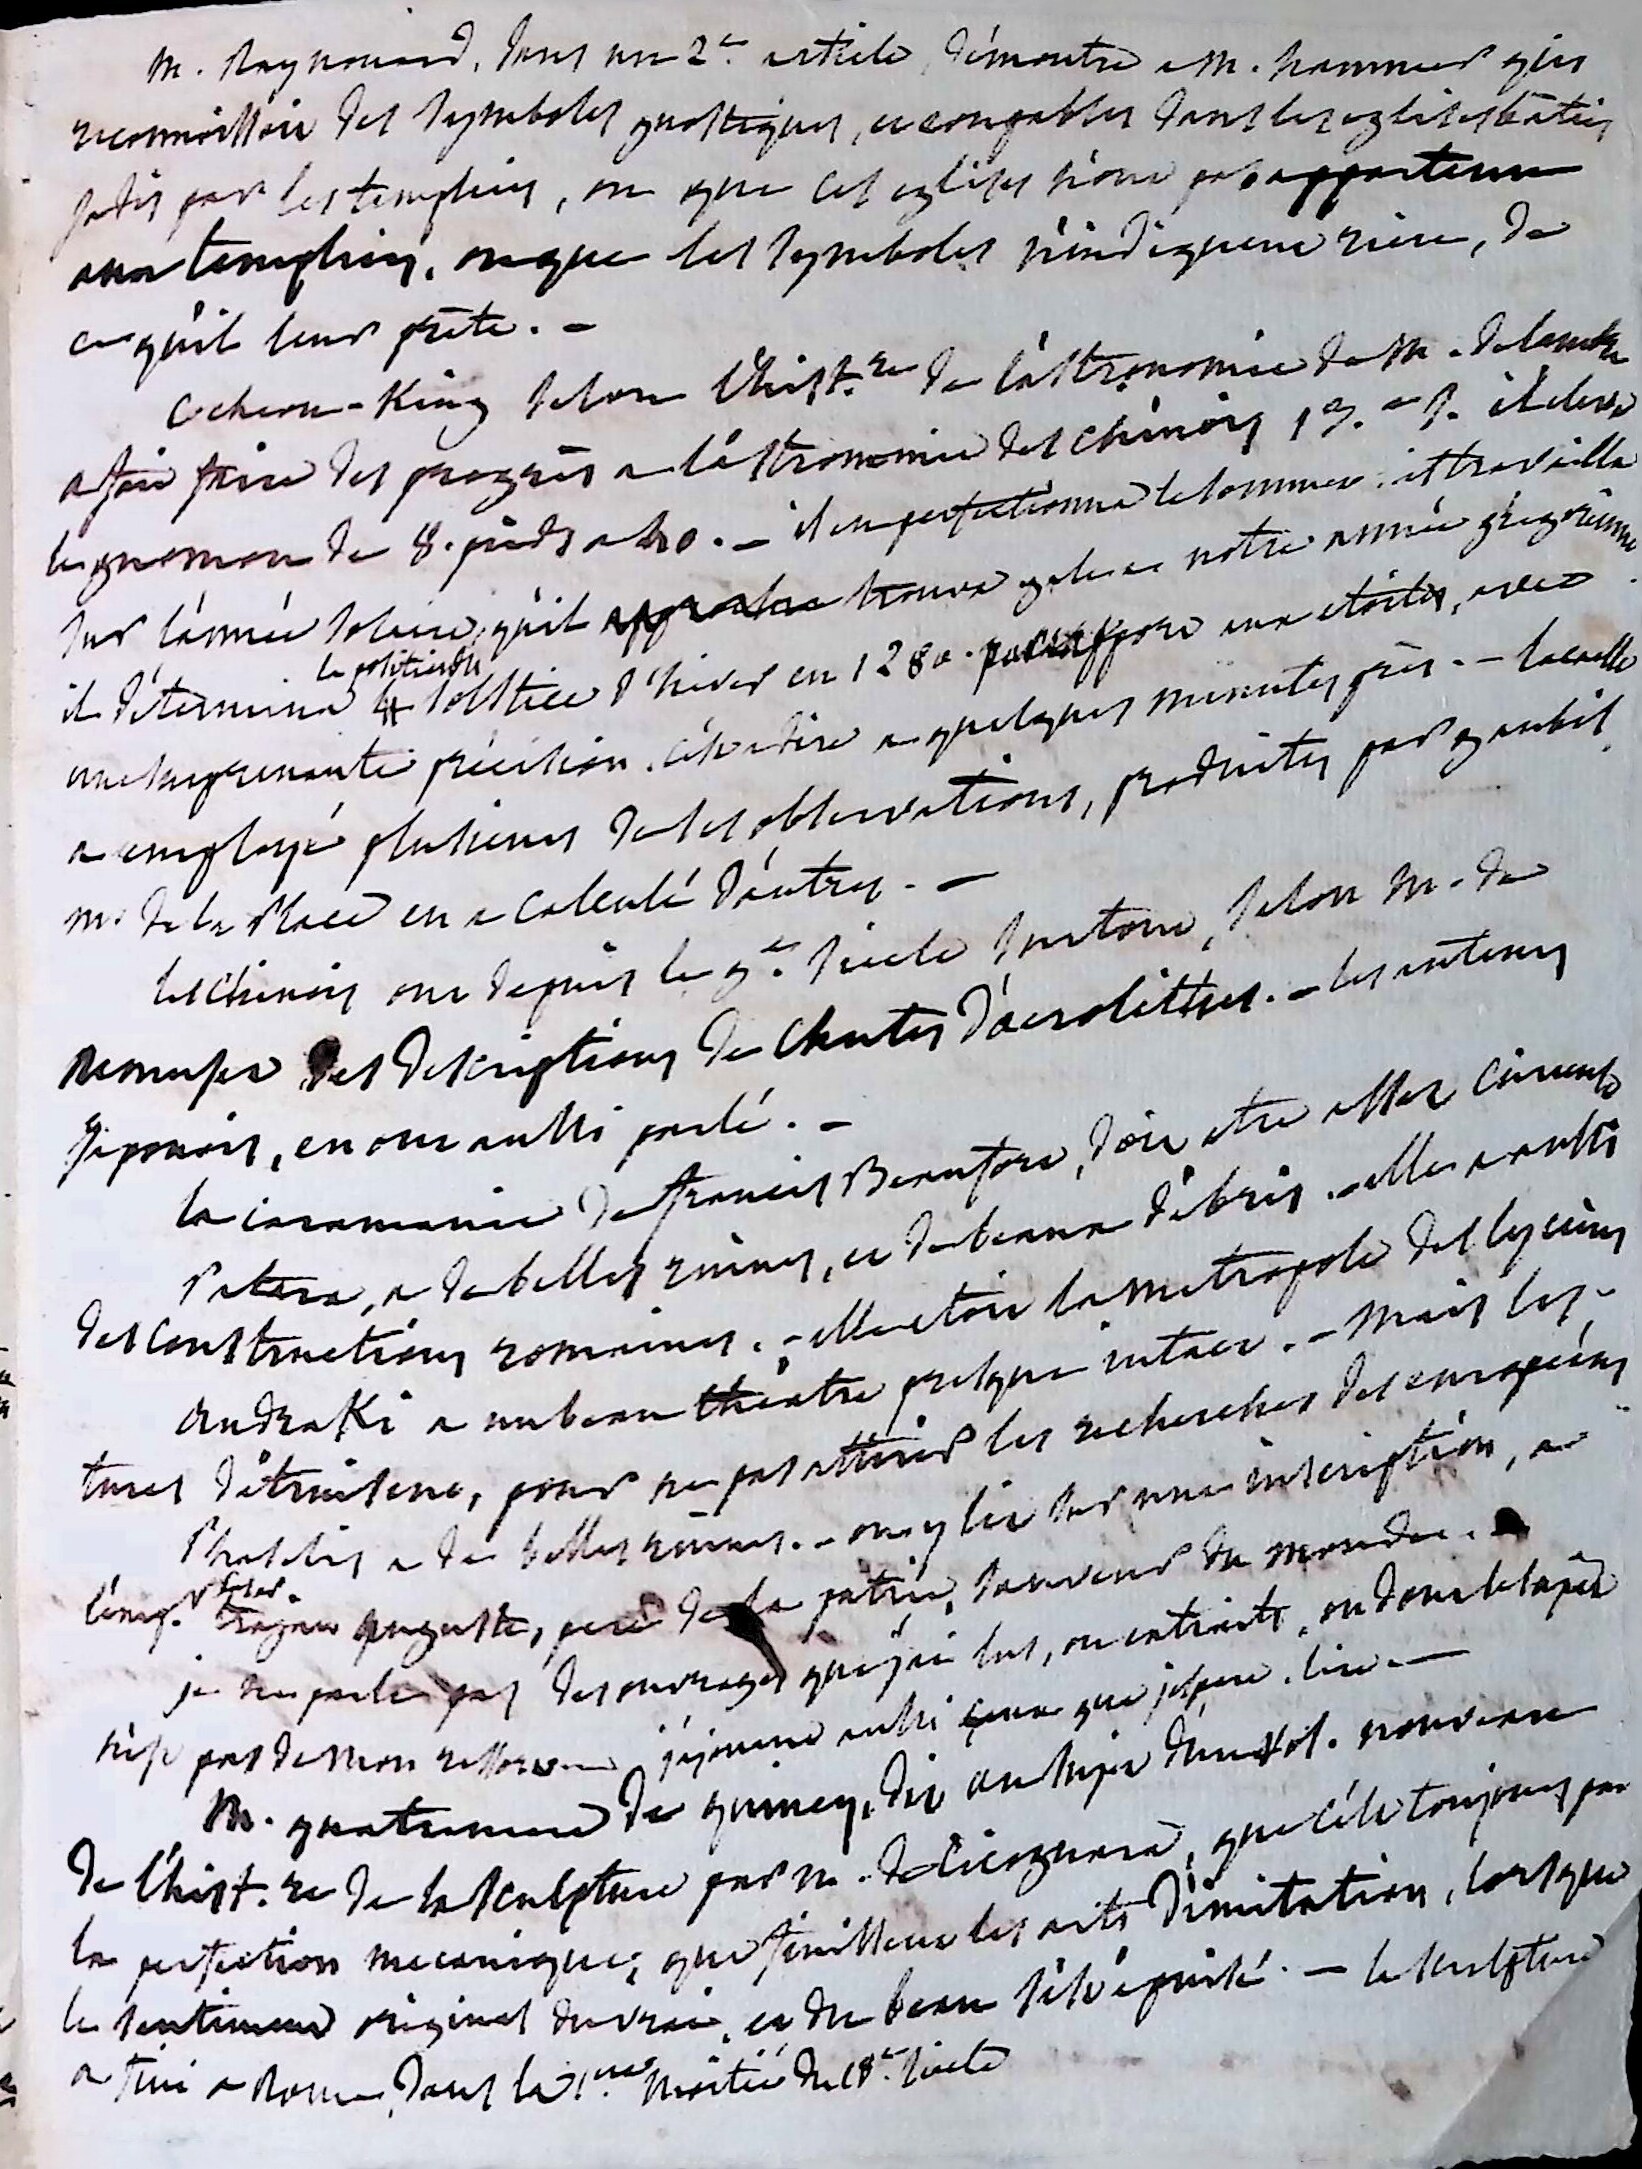 M. Raynouard, dans un 2e. article, démontre a M. hammer qu'en
reconnoissant des symboles gnostiques, et coupables dans les eglises bâties
jadis par les templiers, ou que ces eglises n'ont pas appartenu
aux templiers, ou que les symboles n'indiquent rien, de
ce qu'il leur prête. –
Cocheou-King selon l'hist.re de l'astronomie de M. Delambre
a fait faire des progrès a l'astronomie des chinois 13.e s. il éleva
le gnomon de 8. pieds a 40. – il en perfectionna le sommet. il travailla
sur l'année solaire, qu'il trouva egale a notre année grégorienne
il détermina la position du solstice d'hiver en 1280. par rapport aux etoiles, avec
une surprenante précision. c'est a dire a quelques minutes près. – lacaille
a employé plusieurs de ses observations, produites par gaubil
mr. de la Place en a calculé d'autres. –
les chinois ont depuis le 7e. siecle surtout, selon M. de
Remusat des descriptions de chutes d'aerolithes. – les auteurs
Japonois, en ont aussi parlé. –
la caramanie de francis Beaufort, doit etre assez curieuse
Patara, a de belles ruines, et de beaux débris. – elle a aussi
des constructions romaines. – elle etoit la metropole des lyciens
Andraki a un beau théatre presque intact. – Mais les
turcs détruisent, pour ne pas attirer les recherches des européens
Phaselis a de belles ruines. – on y lit sur une inscription, a
l'emp.r César. trajan auguste, pere de la patrie, sauveur du monde. –
je ne parle pas des ouvrages que j'ai lus, ou extraits, ou dont le sujet
n'est pas de mon ressort. j'ajourne aussi ceux que j'espere lire. –
M. quatremere de quincy, dit au sujet d'un vol. nouveau
de l'hist.re de la sculpture par m. de Cicognara, que c'est toujours par
la perfection mecanique, que finissent les arts d'imitation, lorsque
le sentiment original du vrai, et du beau s'est épuisé. – la sculpture
a fini a Rome, dans la 1.ere moitié du 18e. siecle